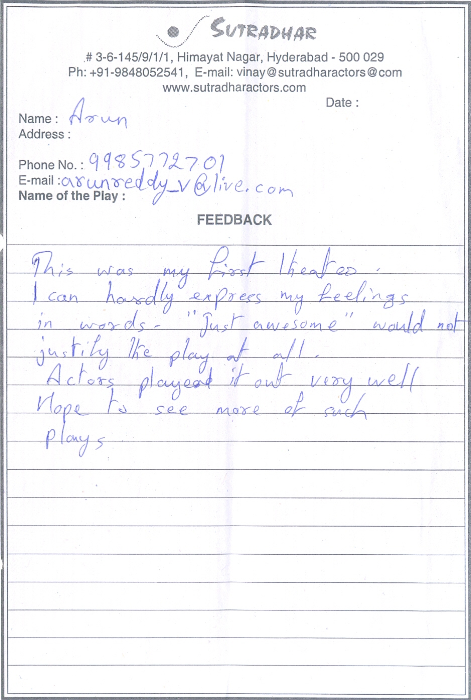 SUTRADHAR
# 3-6-145/9/1/1, Himayat Nagar, Hyderabad - 500 029
Ph: +91-9848052541, E-mail: vinay@sutradharactors@com
www.sutradharactors.com
Date :
Name : Arun
Address :
Phone No. : 9985772701
E-mail : arunreddy_v@live.com
Name of the Play :
FEEDBACK
This was my first theatre.
I can hardly express my feelings
in words - "Just awesome" would not
justify the play at all.
Actors played it out very well
Hope to see more of such
plays